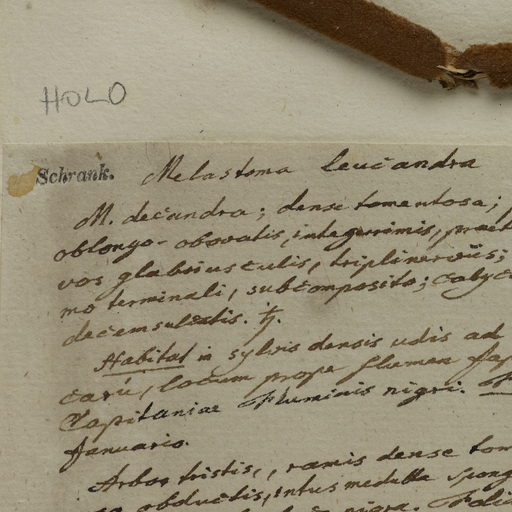 HOLO
Schrank. Melastoma leucandra
M. decandra; dense tomentosa;
oblongo-obovatis, integerrimis, praet
vos glabriusculis, triplinerviis;
mo terminali, subcomposito; calyc
decemsulcatis. ♄.
Habitat in sylvis densis udis ad
carú, locum prope flumen Jap
Capitaniae Fluminis nigri. F
Januario.
Arbor tristis, ramis dense tom
obductis, intus medulla spong
nigra. Foli